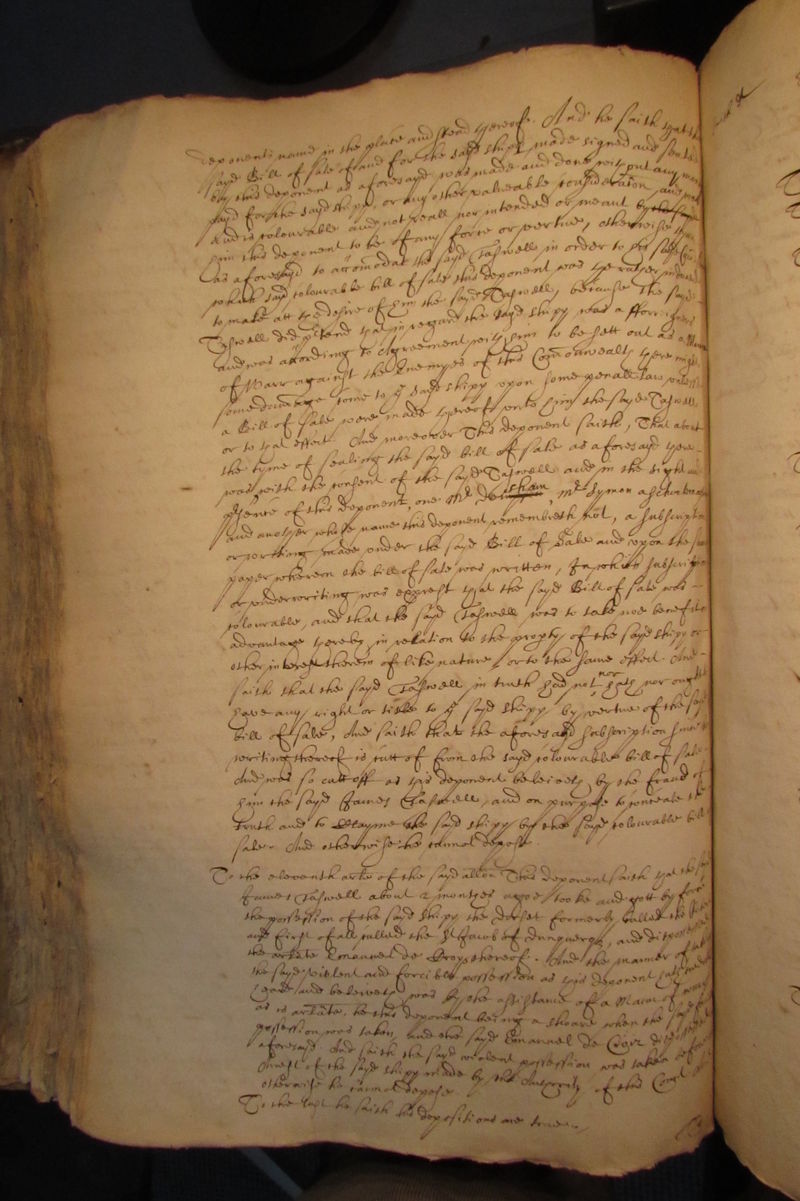 deponents name in the place and stead thereof. And he saith that the
sayd Bill of sale of and for the sayd shipp made signed and sealed
by this deponent as aforesayd was made and done without any mony
payd for the sayd shipp, or any other valueable consideration, and
And is colourable and not reall nor intended or meant by
him this deponent to be of any force or vertue, otherwise than
as aforesayd to accomodat the sayd Tashwell in order to his sayd
which sayd colourable bill of sale this deponent was the rather induced
to make att the desire of him the sayd Tashwell, because the sayd
Tashwell did pretend that in regard the sayd shipp was a fforreigner
and was according to Agreement with him to be sett out as a Man
of Warr against the Enemyes of this Comonwealth there might
some damage come to the sayd shipp upon some penall law unlesse
a Bill of sale were made thereof unto him the sayd Tashwell
or to that effect. And moreover This deponent saith, That about
the tyme of sealing the sayd bill of sale as aforesayd there
was with the consent of the sayd Tashwell and in the sight and
presence of this deponent, one Mr , Mr Symon
and another whose name this deponent remembreth not, a subscription
or writing made under the sayd Bill of Sale and upon the same
paper wherein the bill of sale was written, In which subscription
or underwriting was exprest that the sayd Bill of sale was
colourable, and that the sayd Tashwell was to take noe benefit or
advantage thereby in relation to the propty of the sayd shipp or
other interest therein of like nature, or to the same effect. And
saith that the sayd Tashwell in truth had not nor hath nor ought to
have any right or title to the sayd shipp by vertue of the sayd
bill of sale, And saith that the aforesayd subscription
writing thereof is cutt of from the sayd colourable bill of sale
And was so cutt off as this deponent beleiveth by the fraud of
him the sayd James Tashwell, and on purpose to conceale the
truth and to Clayme the sayd shipp by the sayd colourable bill
sale. And otherwise he cannot depose.
To the eleventh arte of the sayd allon This deponent saith that the sayd
James Tashwell about 2 monthes agoe tooke and gott by force
the possession of the sayd shipp the Dorset formerly called the
and first of all called the St Jacob of dunquerque, and dispossessed
the arlate Emanuel de Croys thereof. And the manner of
the sayd violent and forcible possession as this deponent hath
heard and beleiveth was by the assistance of a Man of warr
as is arlate, he this deponent being a shoare when the sayd
possession was taken, and the sayd Emanuel de Croys dispossessed
aforesayd. And saith the sayd violent possession was taken before
Arrest of the sayd shipp made by the Authority of this Court
otherwise he cannot depose.
To the last he saith his depositions are true.